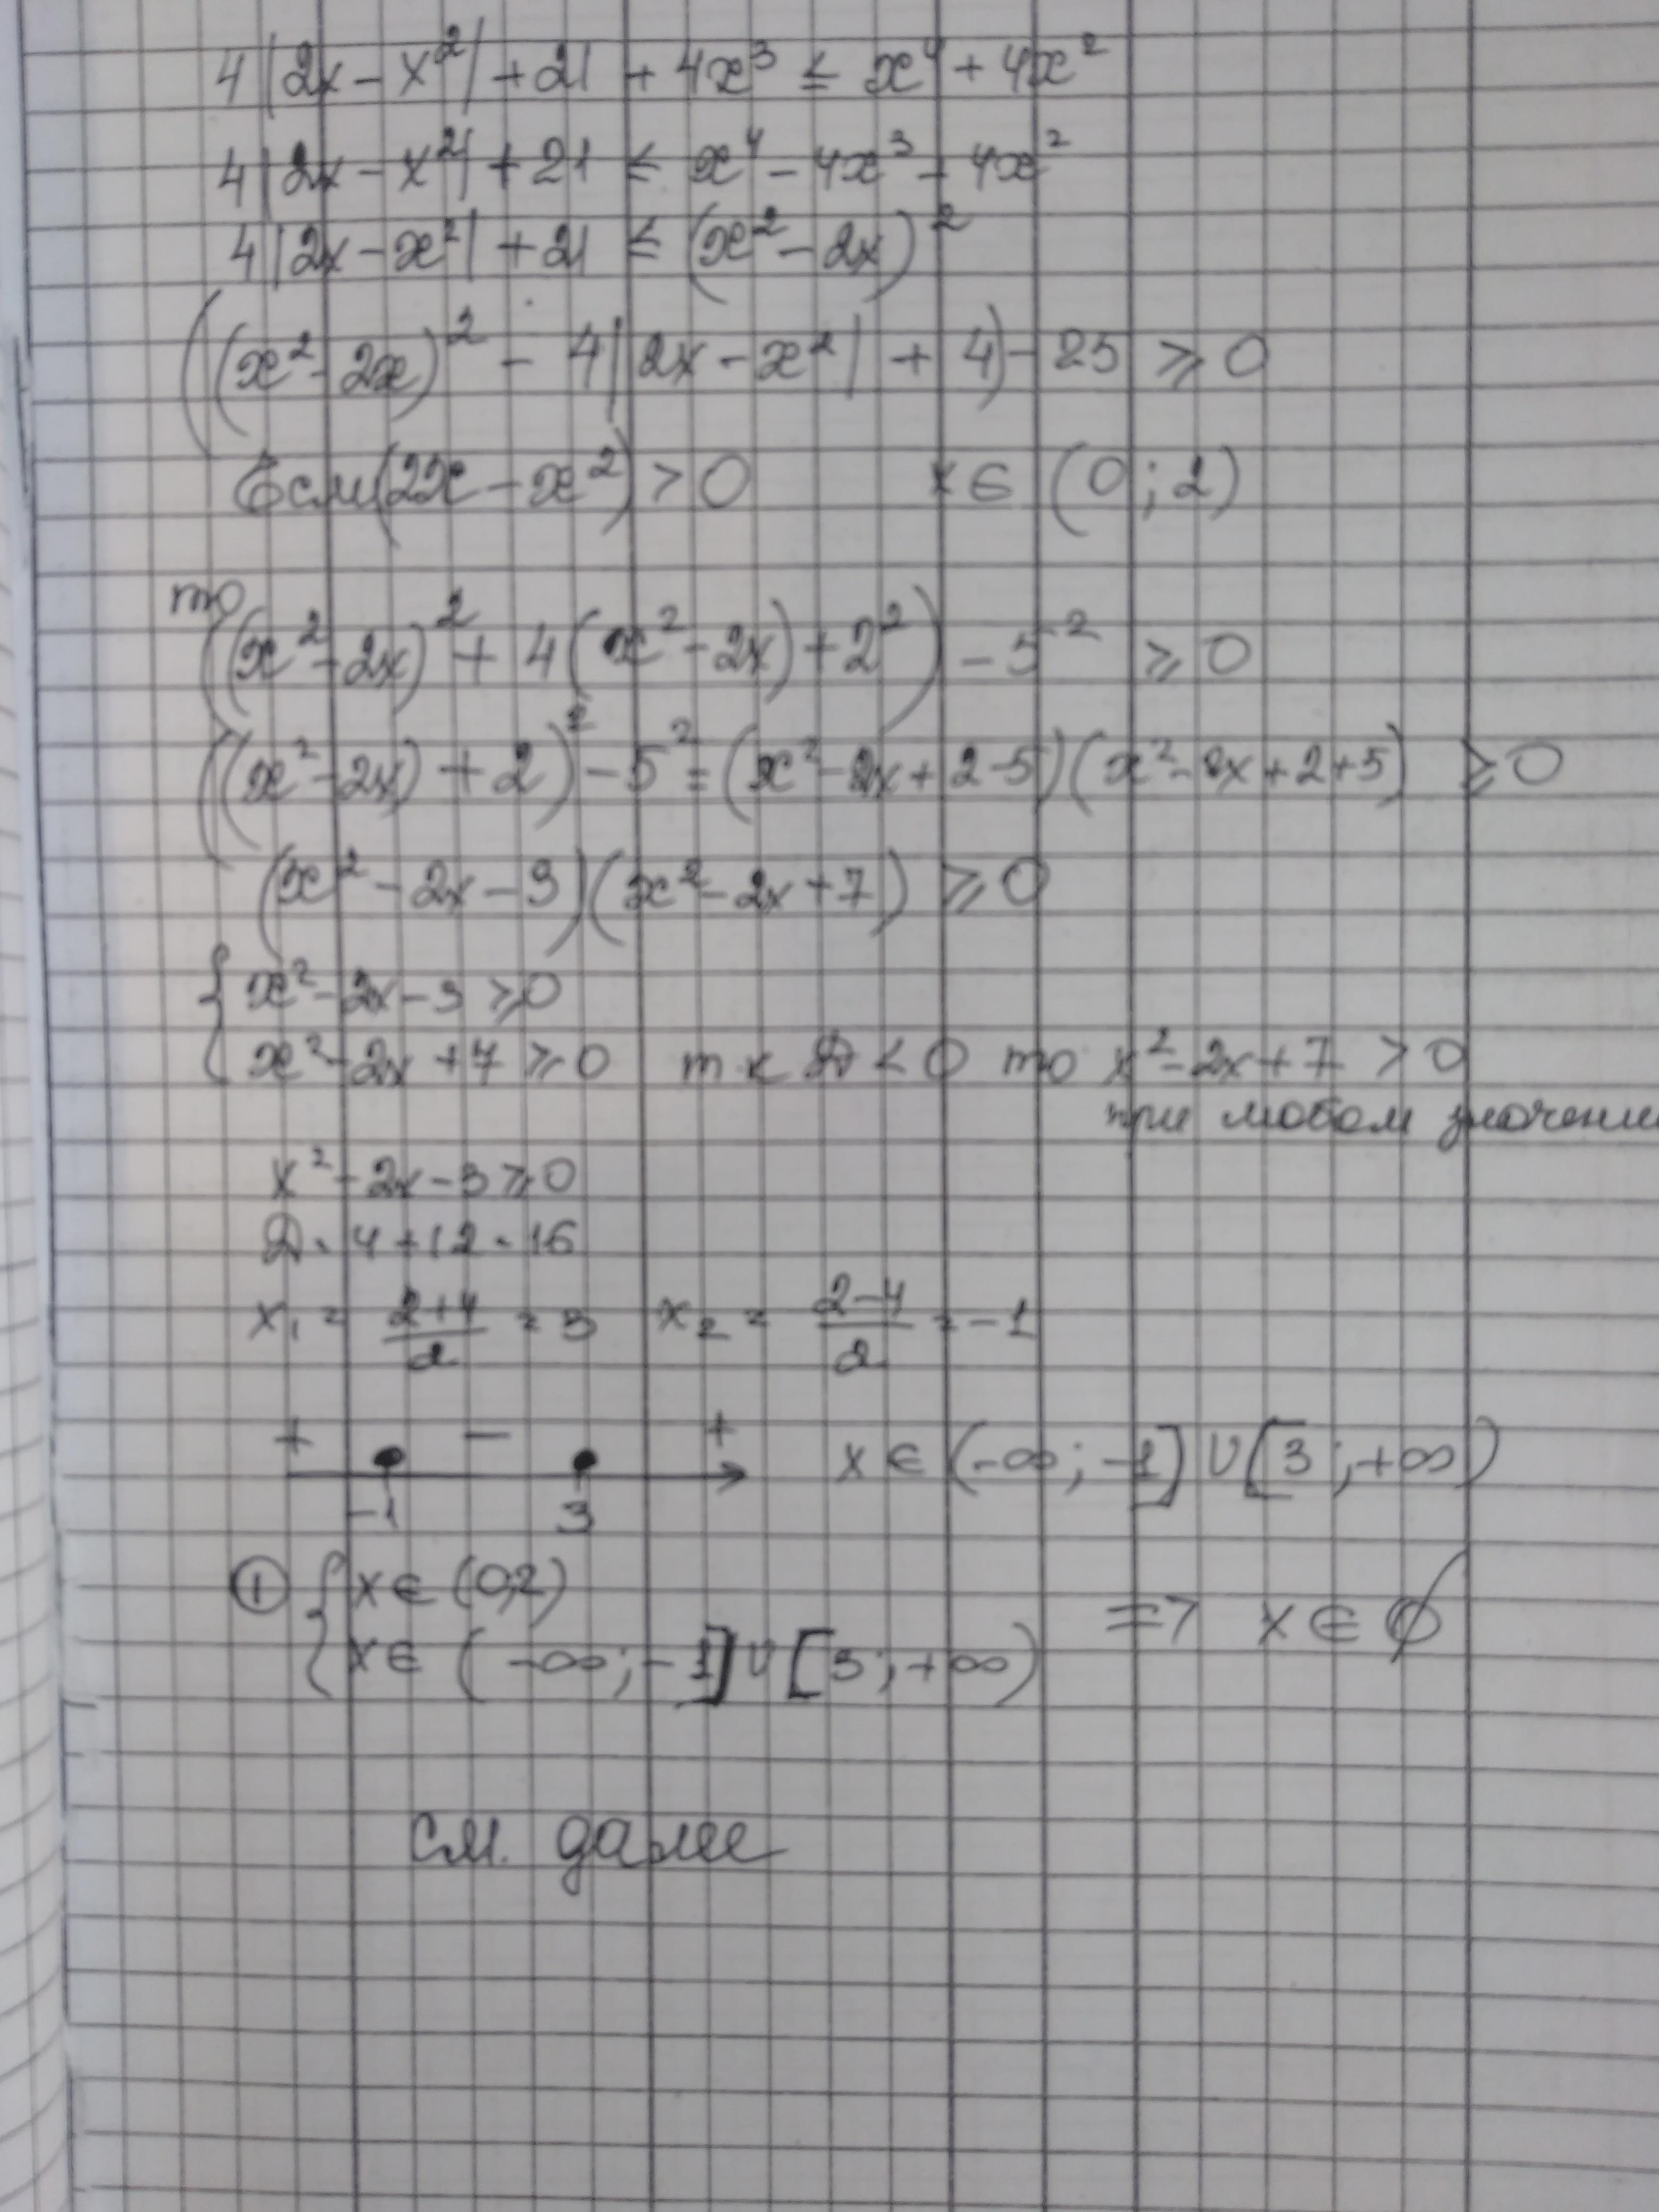 4|2x - x²| + 21 + 4x³ ≤ x⁴ + 4x²
4|2x - x²| + 21 ≤ x⁴ - 4x³ + 4x²
4|2x - x²| + 21 ≤ (x² - 2x)²
((x² - 2x)² - 4|2x - x²| + 4) - 25 ≥ 0
Если (2x - x²) > 0 x ∈ (0; 2)
то
((x² - 2x)² + 4(x² - 2x) + 2²) - 5² ≥ 0
((x² - 2x) + 2)² - 5² = (x² - 2x + 2 - 5)(x² - 2x + 2 + 5) ≥ 0
(x² - 2x - 3)(x² - 2x + 7) ≥ 0
{ x² - 2x - 3 ≥ 0
x² - 2x + 7 ≥ 0 т к D < 0 то x² - 2x + 7 > 0
при любом значении
x² - 2x - 3 ≥ 0
D = 4 + 12 = 16
x₁ = (2+4)/2 = 3 x₂ = (2-4)/2 = -1
+ - + x ∈ (-∞; -1] ∪ [3; +∞)
-1 3
① { x ∈ (0;2) => x ∈ ∅
x ∈ (-∞; -1] ∪ [3; +∞)
см. далее